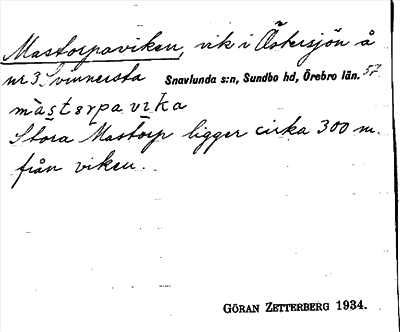 Mastorpaviken, vik i Östersjön å
nr 3 Svinnersta Snavlunda s:n, Sundbo hd, Örebro län. 57
màstərpa vi̱ka
Stora Mastorp ligger cirka 300 m.
från viken.
GÖRAN ZETTERBERG 1934.